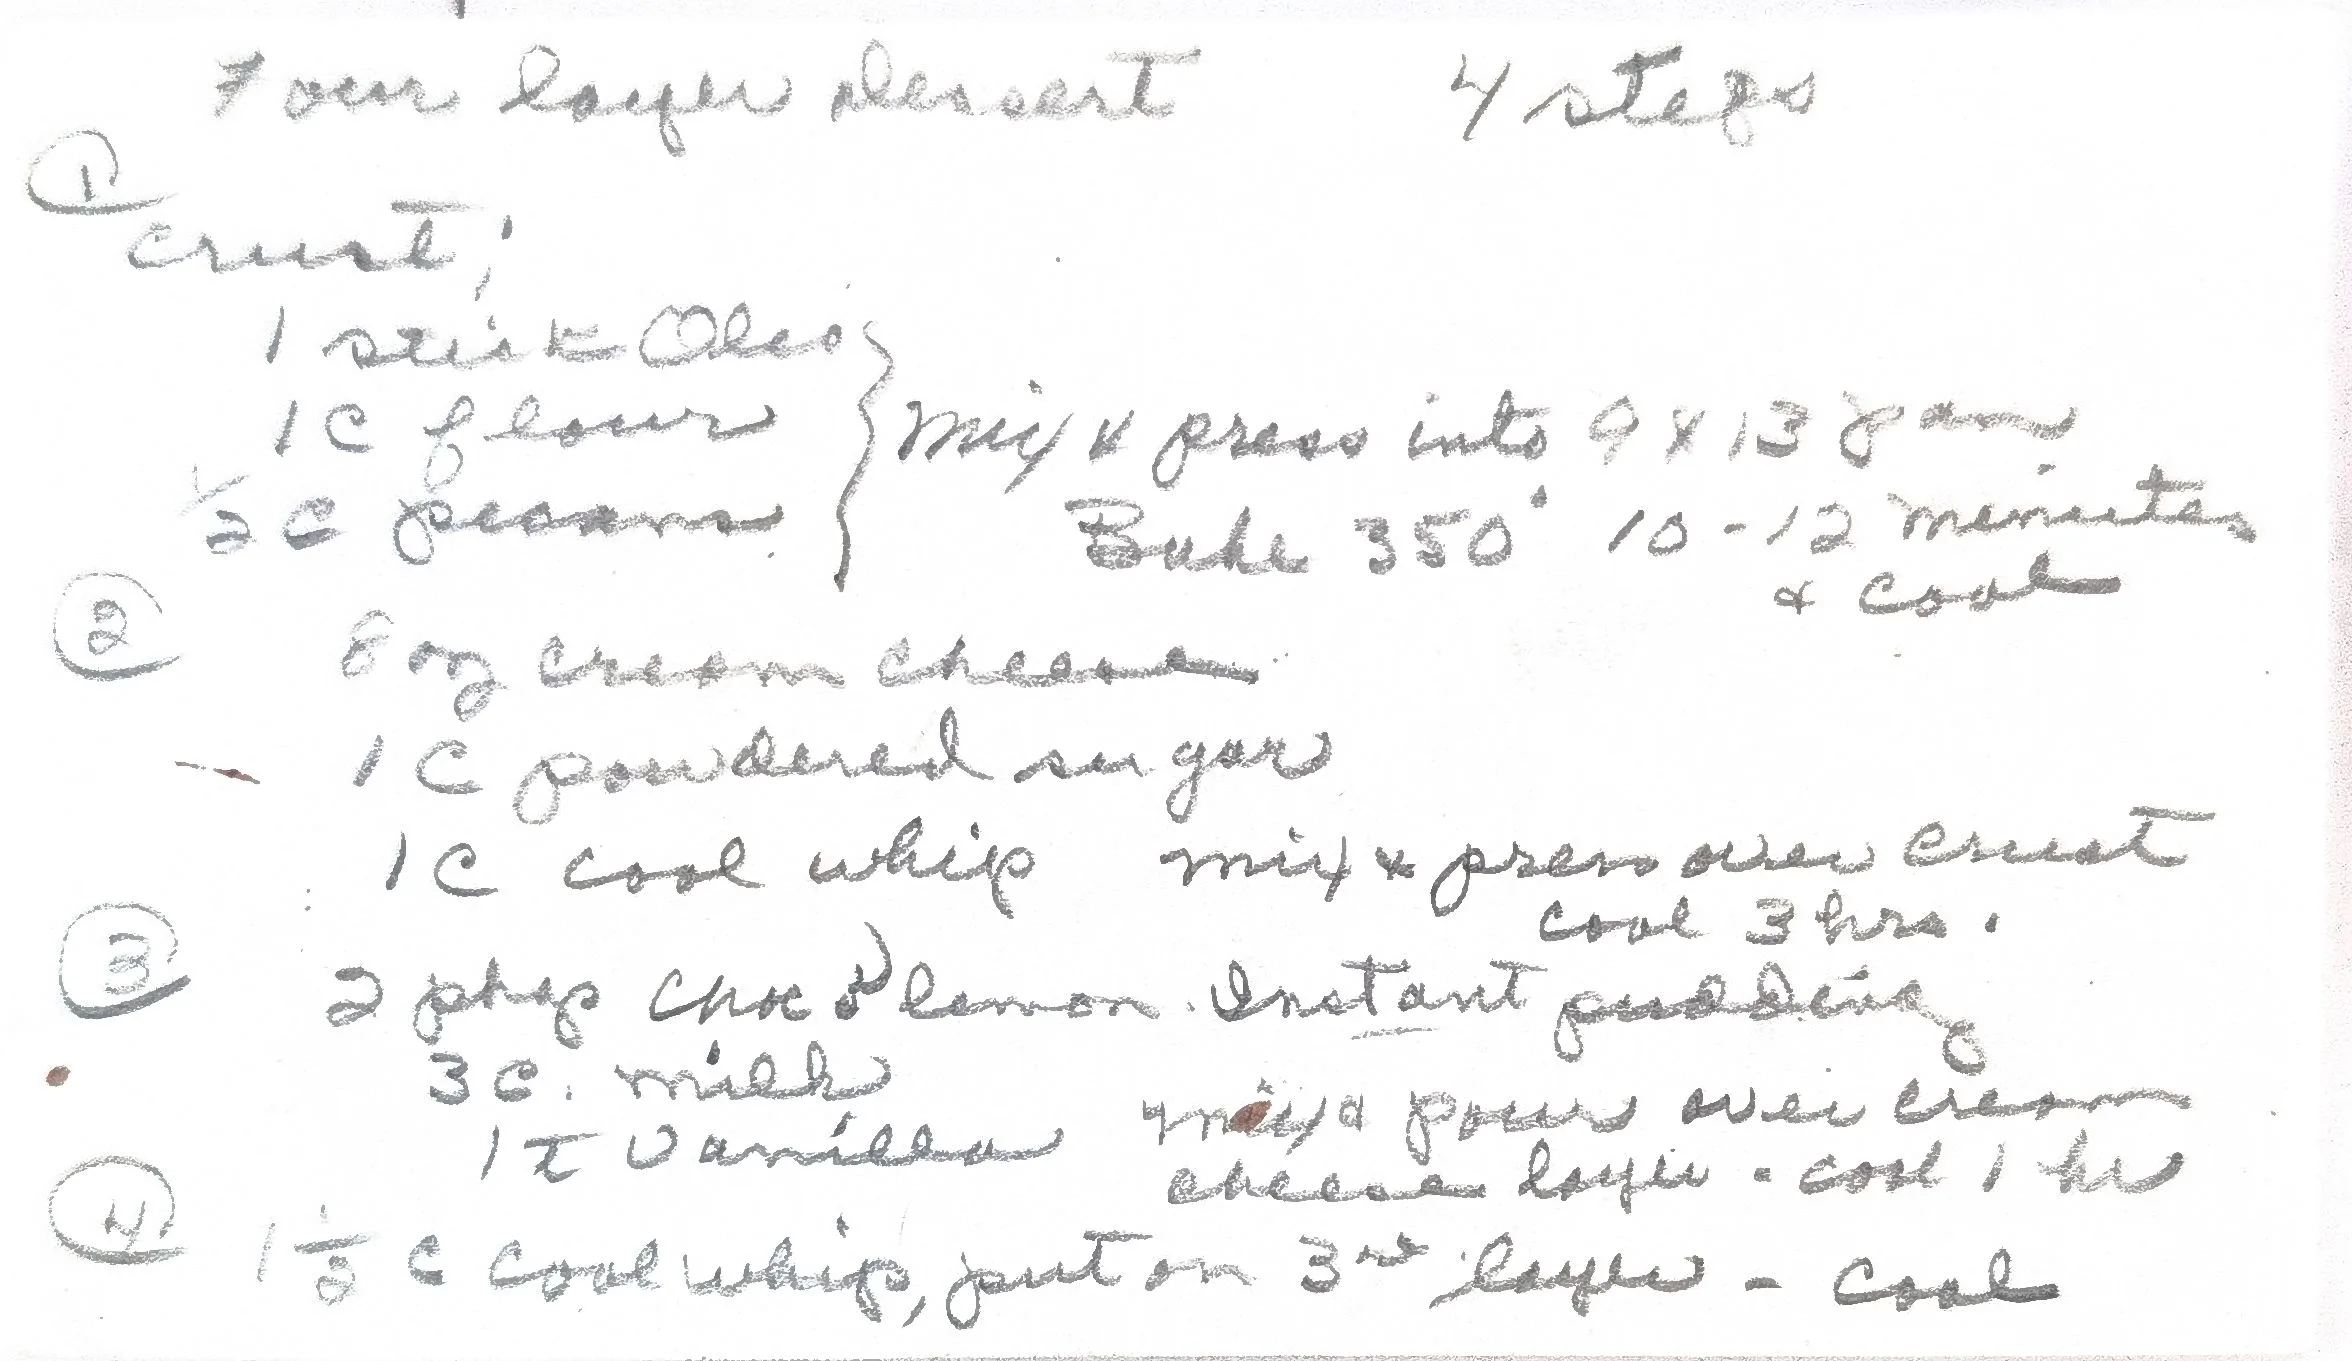 Four layer dessert 4 steps
①
crust;
1 stick Oleo
1 C flour } Mix & press into 9 X 13 pan
1/2 C pecans Bake 350° 10 - 12 minutes
& cool
② 8 oz cream cheese
1 C powdered sugar
1 C cool whip mix & press over crust
cool 3 hrs.
③ 2 pkgs choc or lemon Instant pudding
3 C. milk
1 t vanilla mix & pour over cream
cheese layer - cool 1 hr
④ 1 1/2 C cool whip, put on 3rd layer - cool